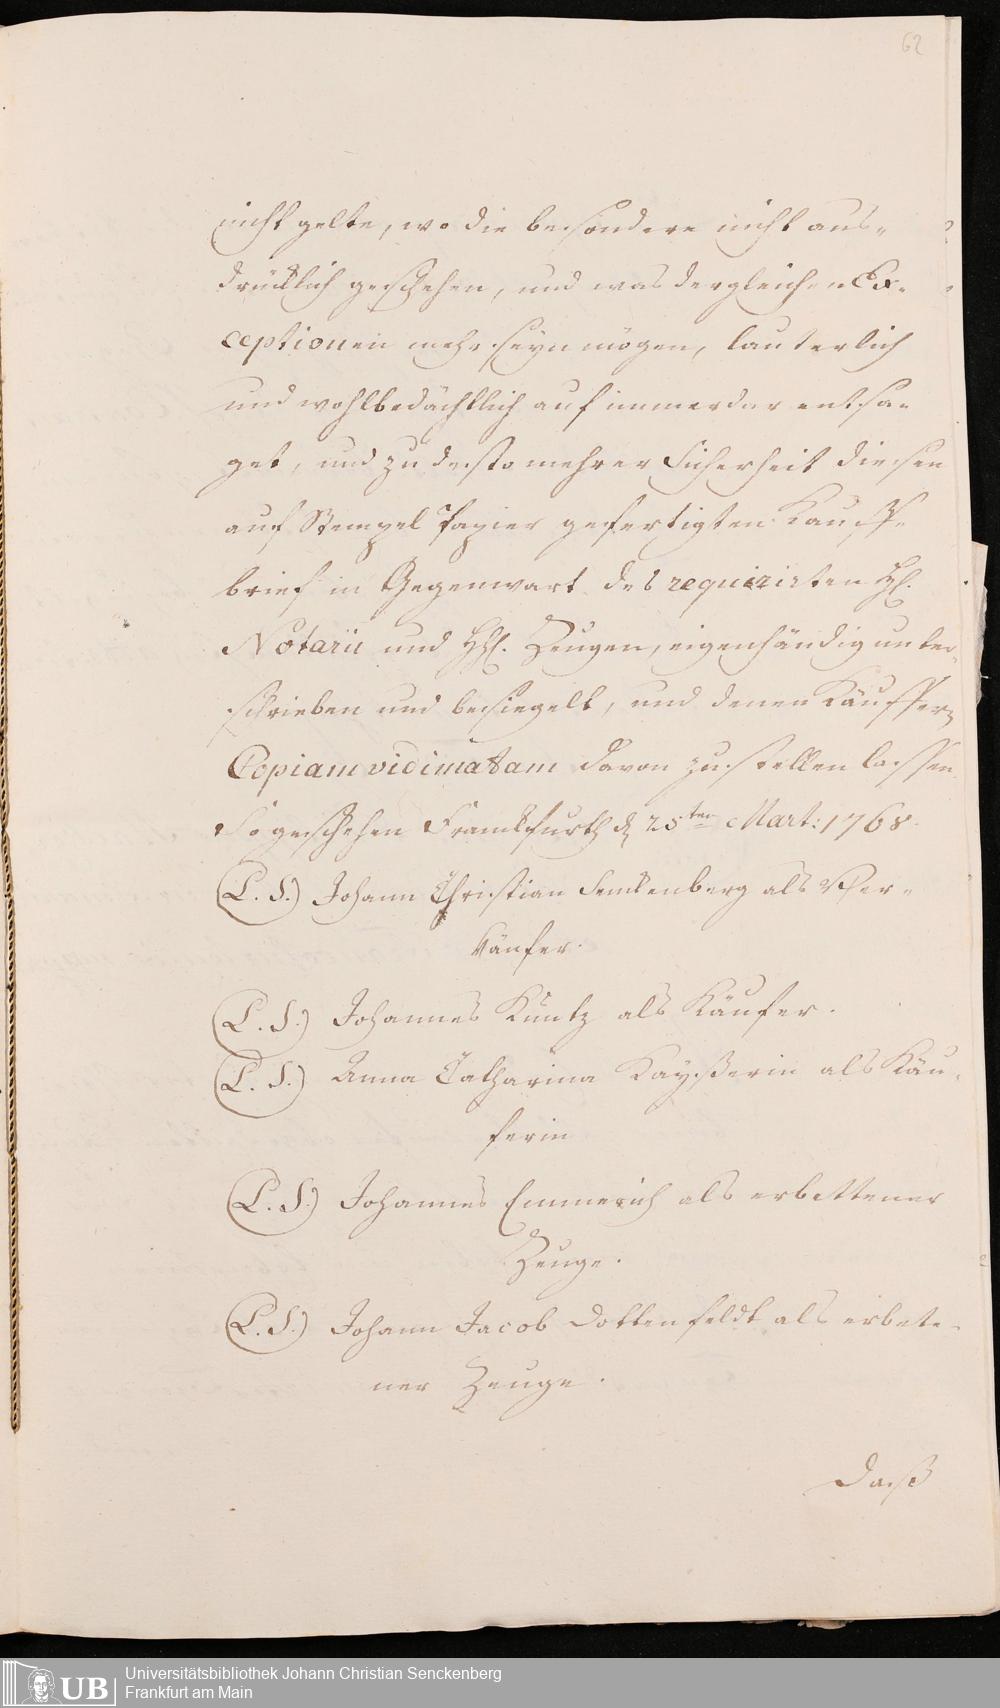 62
nicht gelte, wo die besondere nicht aus-
drücklich geschehen, und was dergleichen Ex-
ceptionen mehr seyn mögen, lauterlich
und wohlbedächtlich auf immerdar entsa-
get, und zu desto mehrer Sicherheit diesen
auf Stempel Papier gefertigten Kauff-
brief in Gegenwart des requirirten H.
Notarii und HH. Zeugen, eigenhändig unter-
schrieben und besiegelt, und denen Käuffern
Copiam vidimatam davon zustellen lassen
So geschehen Franckfurth d 25ten Mart: 1768.
(L. S.) Johann Christian Senckenberg als Ver-
käufer.
(L. S.) Johannes Küntz als Käufer.
(L. S.) Anna Catharina Kayßerin als Käu-
ferin
(L. S.) Johannes Emmerich als erbettener
Zeuge.
(L. S.) Johann Jacob Dottenfeldt als erbete-
ner Zeuge.
Daß
UB
Universitätsbibliothek Johann Christian Senckenberg
Frankfurt am Main